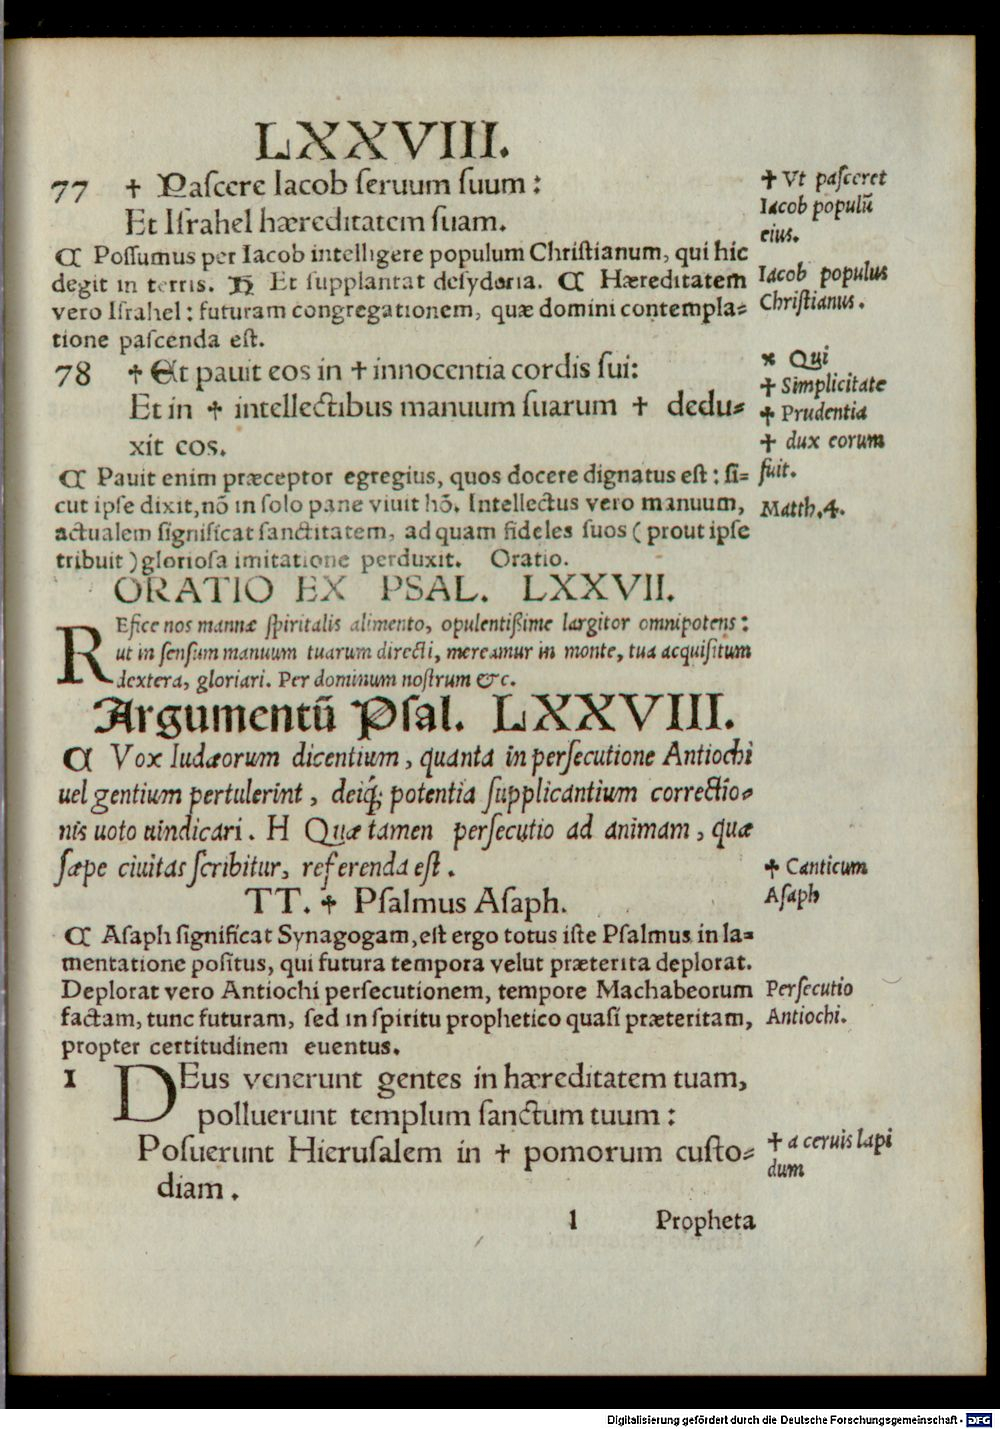 LXXVIII.
77 ✝ Pascere Iacob seruum suum :
Et Israhel hæreditatem suam.
¶ Possumus per Iacob intelligere populum Christianum, qui hic
degit in terris. H Et supplantat desyderia. ¶ Hæreditatem
vero Israhel : futuram congregationem, quæ domini contempla=
tione pascenda est.
✝ Vt pasceret
Iacob populū
eius.
Iacob populus
Christianus.
78 ✝ Et pauit eos in ✝ innocentia cordis sui:
Et in ✝ intellectibus manuum suarum ✝ dedu=
xit eos.
¶ Pauit enim præceptor egregius, quos docere dignatus est : si=
cut ipse dixit, nō in solo pane viuit hō. Intellectus vero manuum,
actualem significat sanctitatem, ad quam fideles suos ( prout ipse
tribuit ) gloriosa imitatione perduxit. Oratio.
× Qui
✝ Simplicitate
✝ Prudentia
✝ dux eorum
fuit.
Matth. 4.
ORATIO EX PSAL. LXXVII.
REfice nos mannæ spiritalis alimento, opulentißime largitor omnipotens :
ut in sensum manuum tuarum directi, mereamur in monte, tua acquisitum
dextera, gloriari. Per dominum nostrum &c.
Argumentū Psal. LXXVIII.
¶ Vox Iudæorum dicentium, quanta in persecutione Antiochi
uel gentium pertulerint, deiq́; potentia supplicantium correctio=
nis uoto uindicari. H Quæ tamen persecutio ad animam, quæ
sæpe ciuitas scribitur, referenda est.
TT. ✝ Psalmus Asaph.
✝ Canticum
Asaph
¶ Asaph significat Synagogam, est ergo totus iste Psalmus in la=
mentatione positus, qui futura tempora velut præterita deplorat.
Deplorat vero Antiochi persecutionem, tempore Machabeorum
factam, tunc futuram, sed in spiritu prophetico quasi præteritam,
propter certitudinem euentus.
Persecutio
Antiochi.
1 DEus venerunt gentes in hæreditatem tuam,
polluerunt templum sanctum tuum :
Posuerunt Hierusalem in ✝ pomorum custo=
diam.
✝ a ceruis lapi
dum
l Propheta
Digitalisierung gefördert durch die Deutsche Forschungsgemeinschaft - DFG